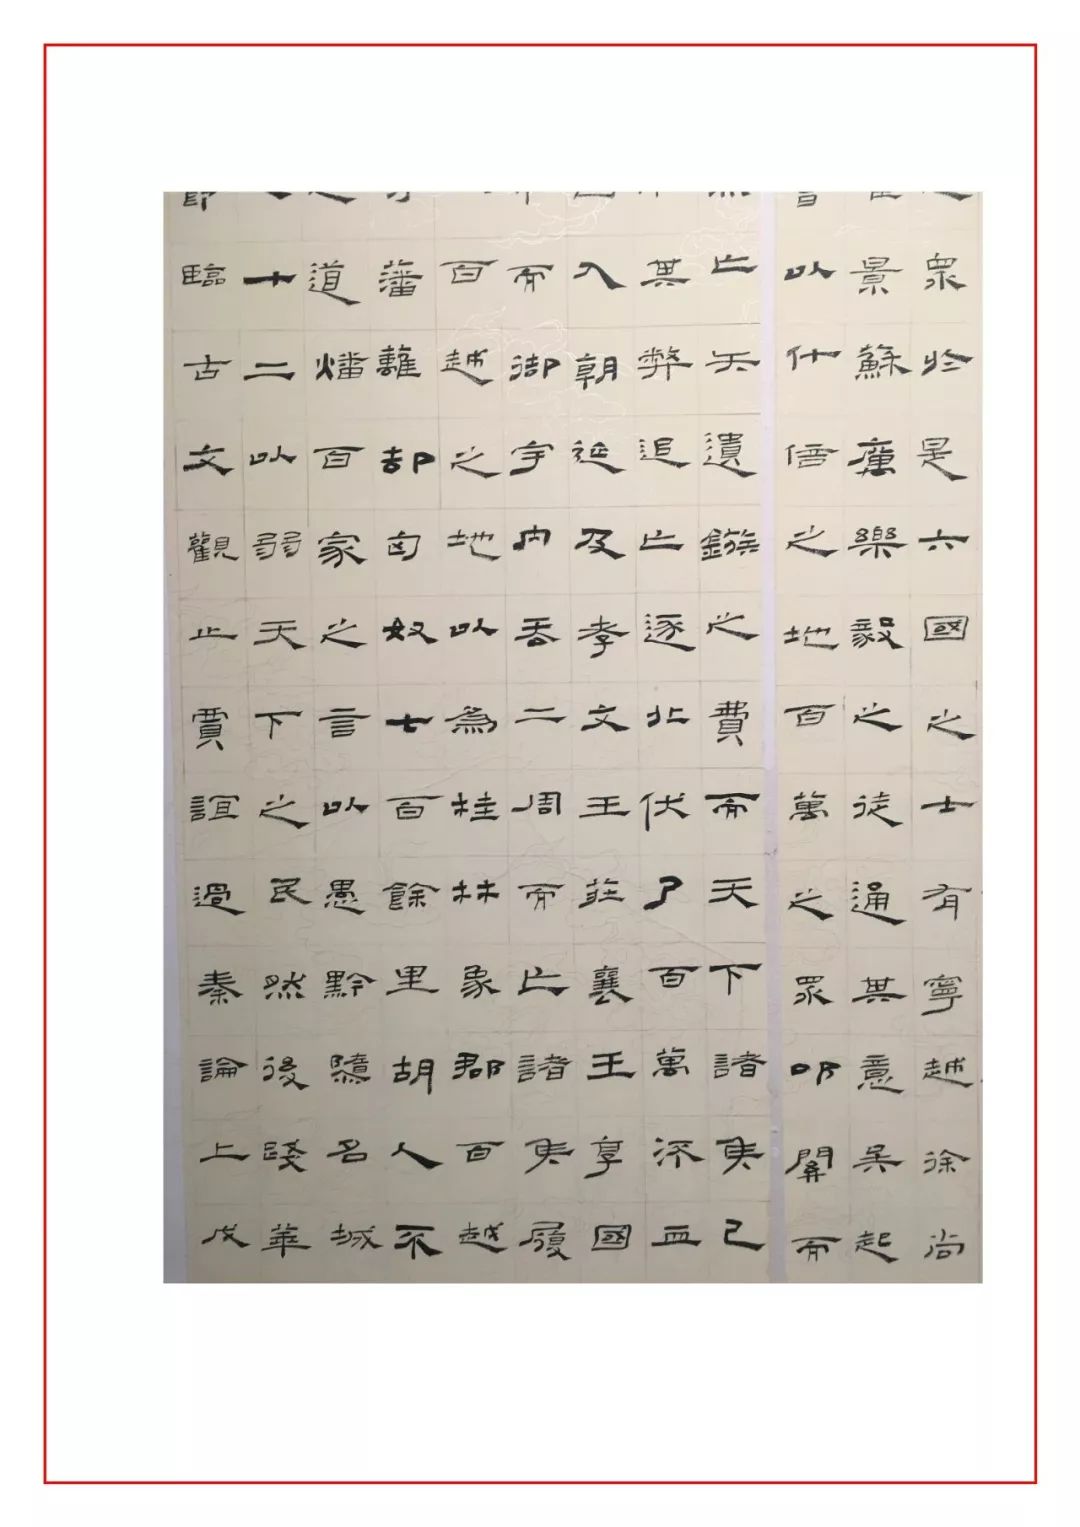 衆於是六國之士有寧越徐尚
景蘇厲樂毅之徒通其意吳起
以什倍之地百萬之眾叩關而
亡矢遺鏃之費而天下諸矦已
其弊追亡逐北伏尸百萬流血
入朝延及孝文王莊襄王享國
而御宇內吞二周而亡諸矦履
百越之地以為桂林象郡百越
藩籬却匈奴七百餘里胡人不
道燔百家之言以愚黔隳名城
十二以弱天下之民然後踐華
臨古文觀止賈誼過秦論上戊